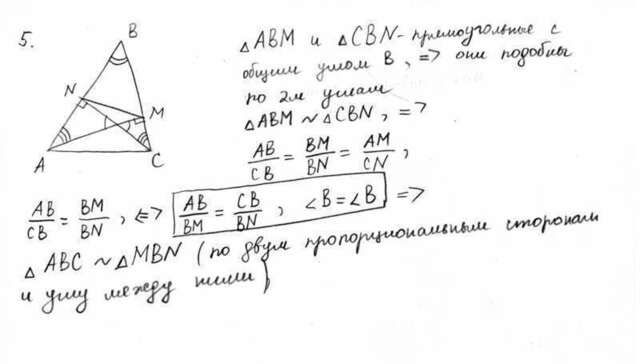 5.
B
N
M
A
C
△ABM и △CBN - прямоугольные с
общим углом B, => они подобны
по 2м углам
△ABM ~ △CBN, =>
AB/CB = BM/BN = AM/CN,
AB/CB = BM/BN, <=> AB/BM = CB/BN, ∠B = ∠B =>
△ABC ~ △MBN (по двум пропорциональным сторонам
и углу между ними)